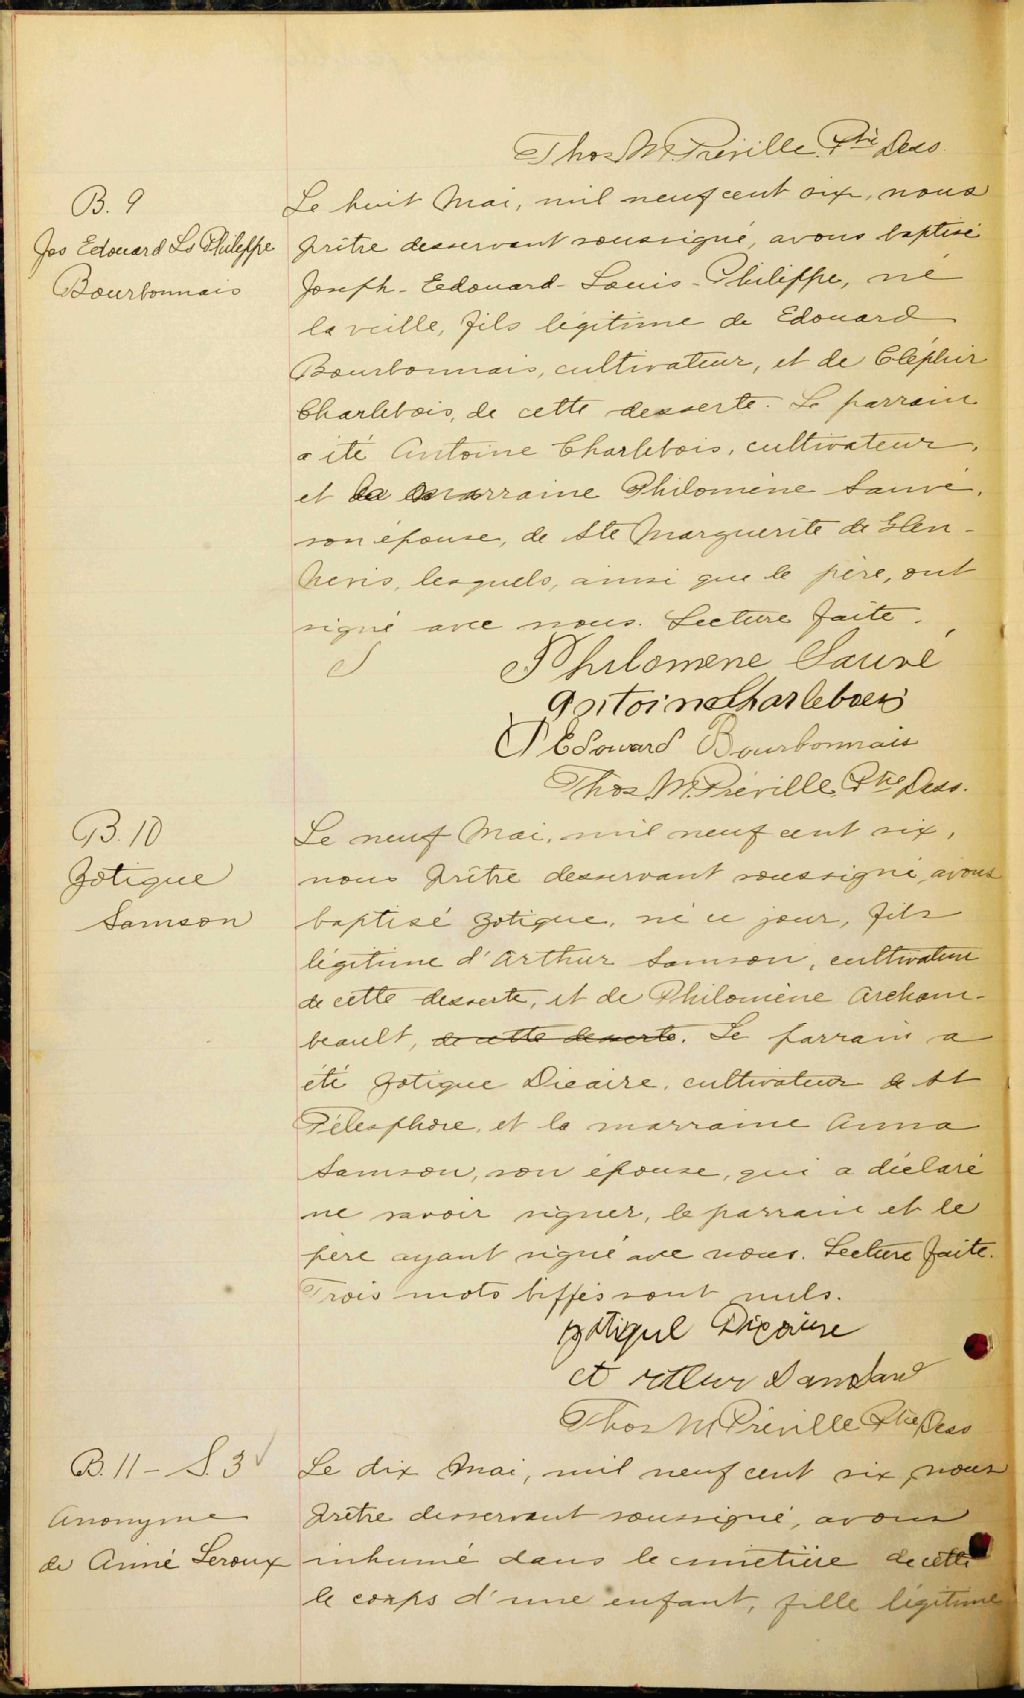 Thos M. Préville Ptre Dess.
B. 9
Jos Edouard Ls Philippe
Bourbonnais
Le huit Mai, mil neuf cent six, nous
prêtre desservant soussigné, avons baptisé
Joseph-Edouard-Louis-Philippe, né
la veille, fils légitime de Edouard
Bourbonnais, cultivateur, et de Cléphir
Charlebois, de cette desserte. Le parrain
a été Antoine Charlebois, cultivateur,
et la marraine Philomène Sauvé,
son épouse, de Ste Marguerite de Glen-
Nevis, lesquels, ainsi que le père, ont
signé avec nous. Lecture faite.
Philomene Sauvé
Antoine Charlebois
Edouard Bourbonnais
Thos. M. Préville, Ptre Dess.
B. 10
Zotique
Samson
Le neuf Mai, mil neuf cent six,
nous prêtre desservant soussigné, avons
baptisé Zotique, né ce jour, fils
légitime d'Arthur Samson, cultivateur
de cette desserte, et de Philomène Archam-
beault, de cette desserte. Le parrain a
été Zotique Dicaire, cultivateur de St
Télesphore, et la marraine Anna
Samson, son épouse, qui a déclaré
ne savoir signer, le parrain et le
père ayant signé avec nous. Lecture faite.
Trois mots biffés sont nuls.
Zotique Dicaire
Thos M Préville Ptre Dess
B. 11 - S. 3
Anonyme
de Aimé Leroux
Le dix Mai, mil neuf cent six, nous
prêtre desservant soussigné, avons
inhumé dans le cimetière de cette
le corps d'une enfant, fille légitime